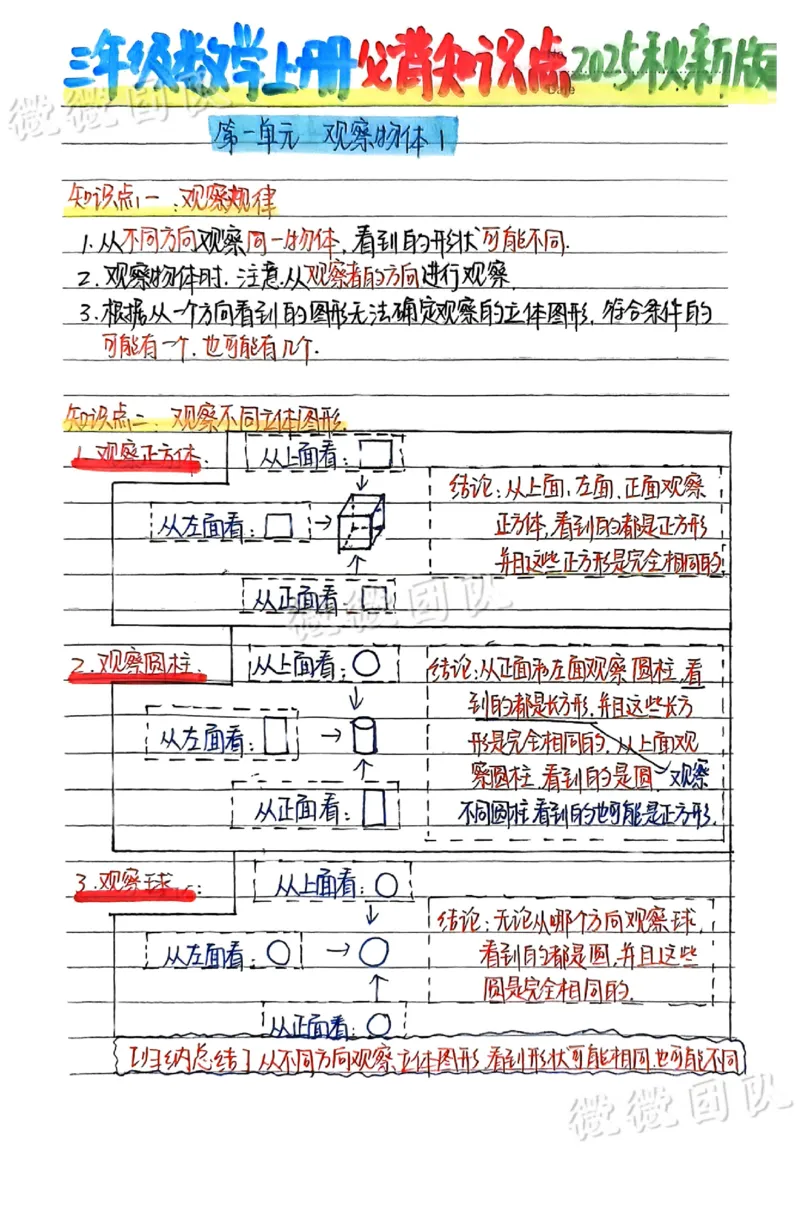 三年级数学上册必背知识点2025秋新版
微微团队
第一单元 观察物体1
知识点一:观察规律
1.从不同方向观察同一物体,看到的形状可能不同.
2.观察物体时,注意从观察者的方向进行观察.
3.根据从一个方向看到的图形无法确定观察的立体图形,符合条件的
可能有一个,也可能有几个.
知识点二:观察不同立体图形
1.观察正方体:
从上面看:
从左面看:
从正面看:
结论:从上面,左面,正面观察
正方体,看到的都是正方形
并且这些正方形是完全相同的
微微团队
2.观察圆柱:
从上面看:
从左面看:
从正面看:
结论:从正面和左面观察圆柱,看
到的都是长方形,并且这些长方
形是完全相同的,从上面观
察圆柱,看到的是圆,观察
不同圆柱,看到的也可能是正方形.
3.观察球:
从上面看:
从左面看:
从正面看:
结论:无论从哪个方向观察球,
看到的都是圆,并且这些
圆是完全相同的.
归纳总结:从不同方向观察立体图形,看到形状可能相同,也可能不同
微微团队